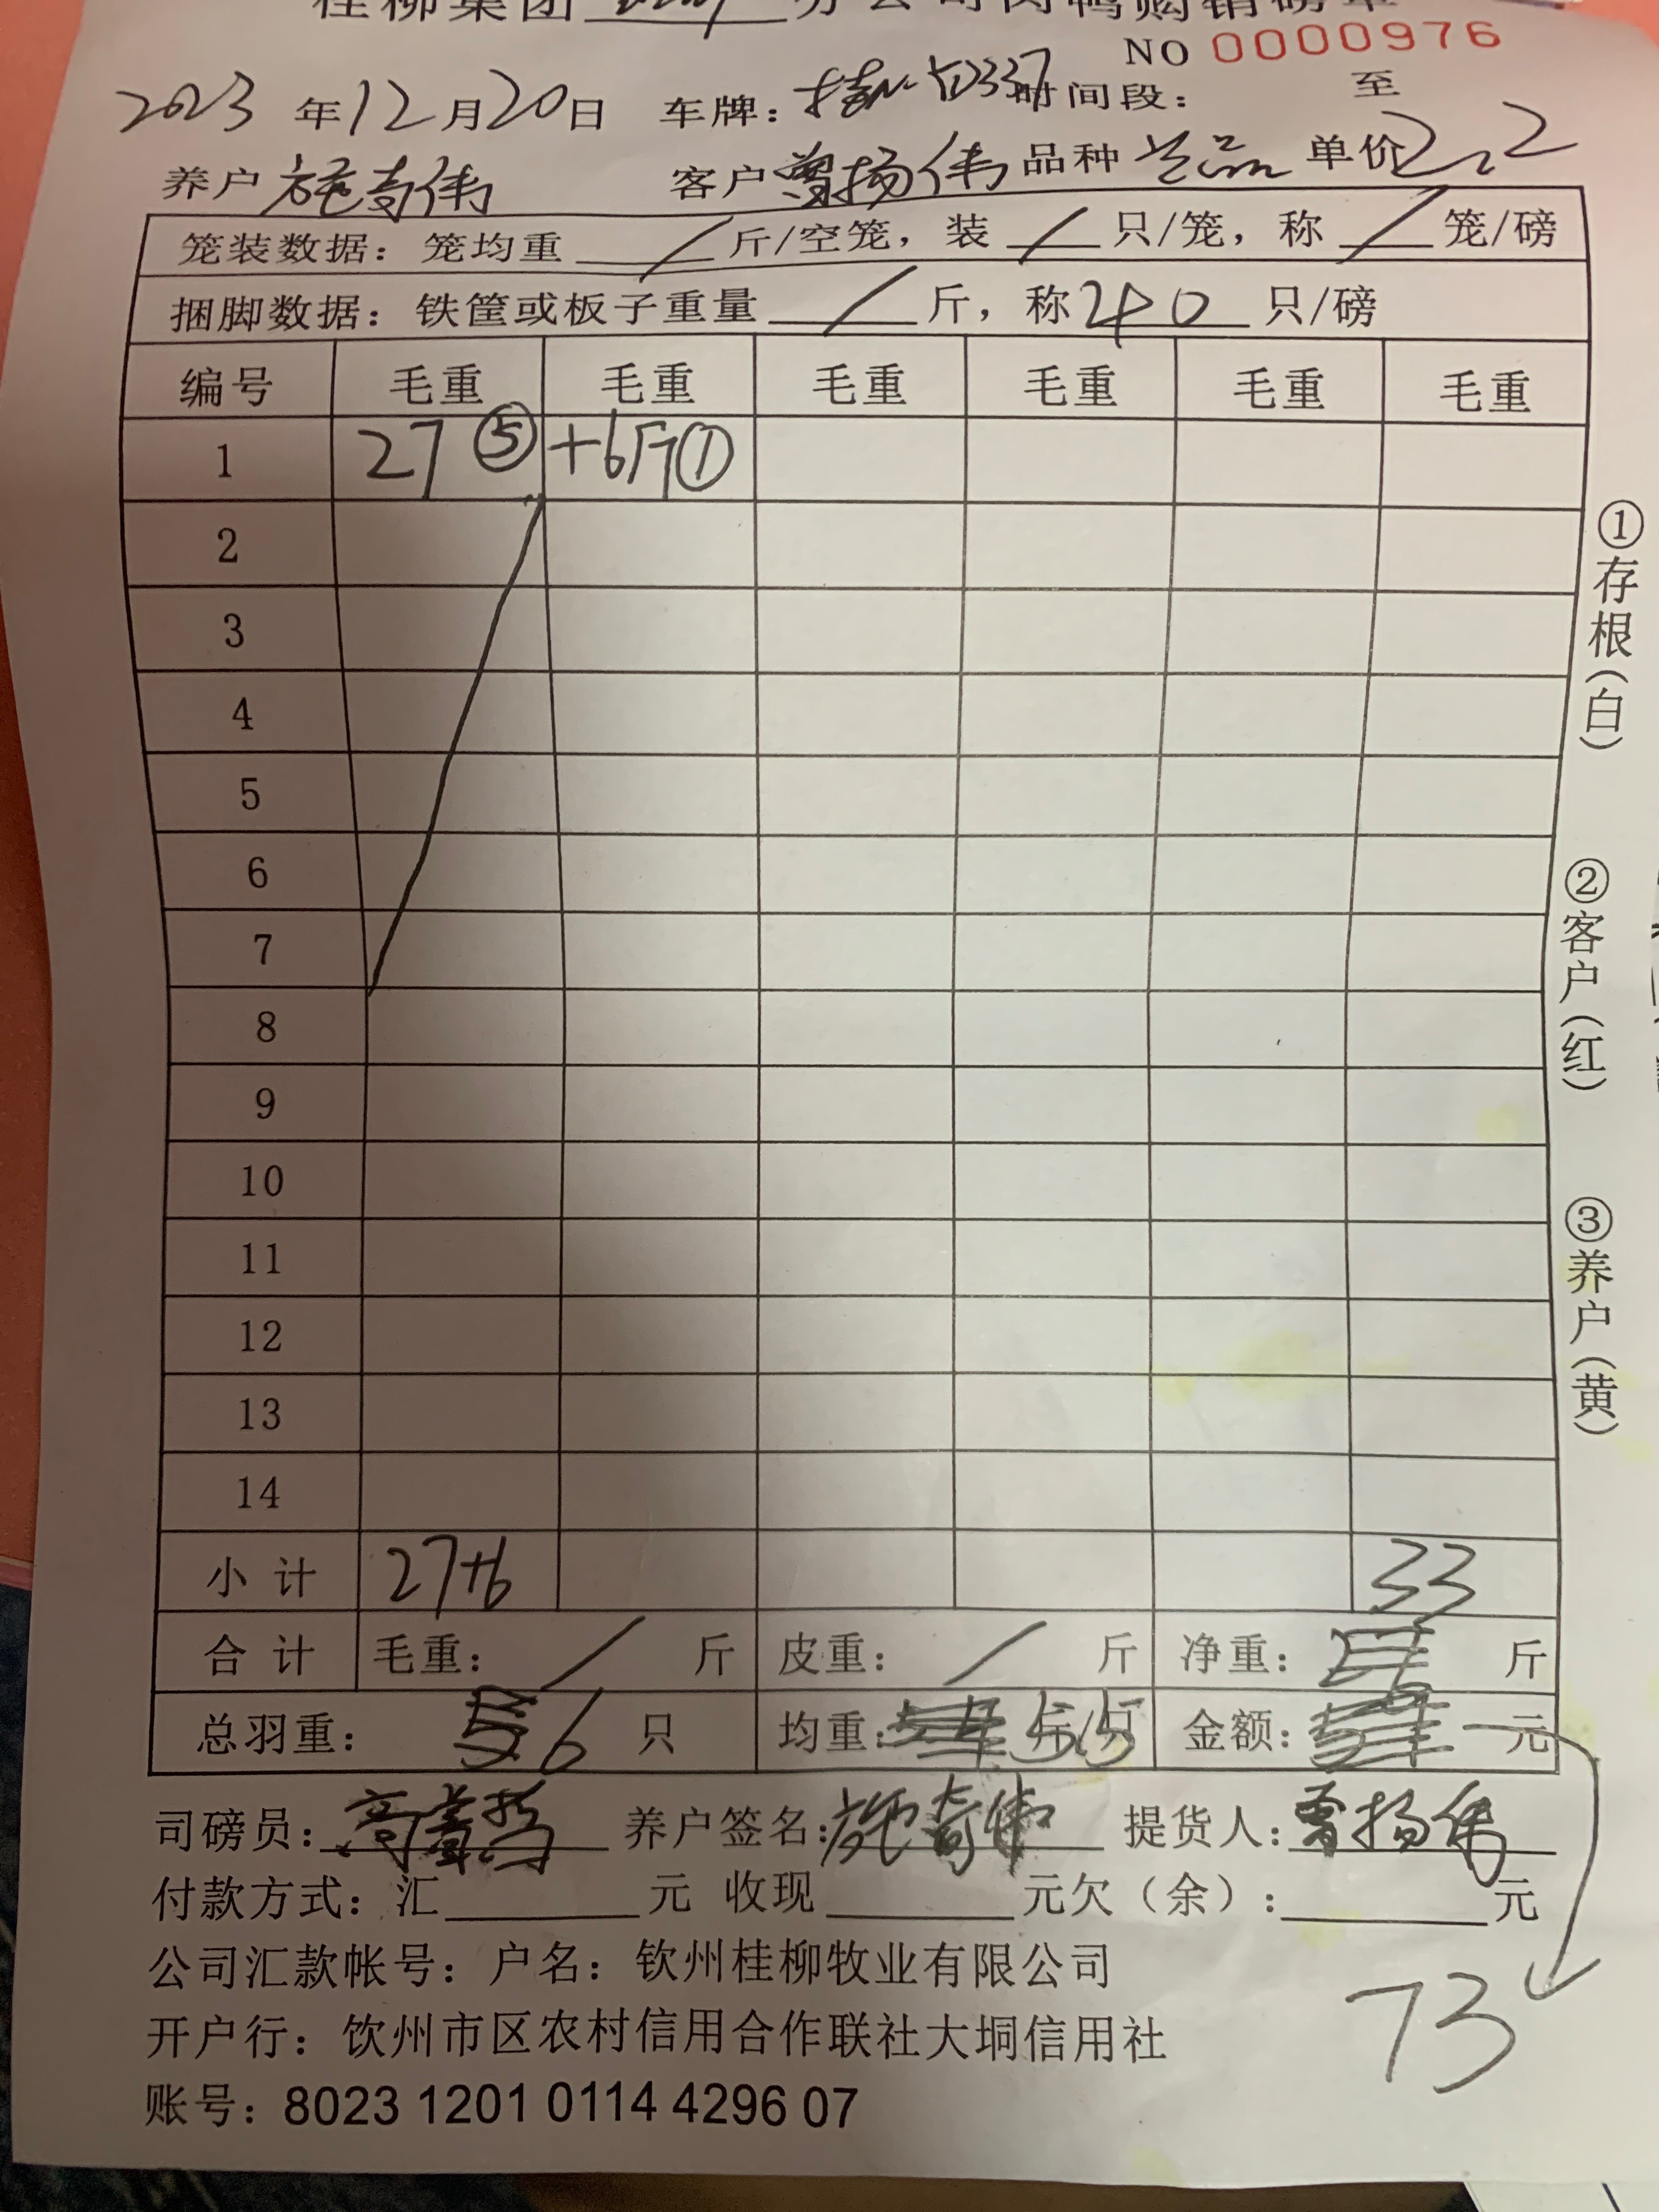 桂柳集团 分公司肉鸭购销磅单
NO 0000976
2023 年 12 月 20 日 车牌： 时间段： 至
养户 施奇伟 客户 曾扬伟 品种 单价 2.2
笼装数据：笼均重 / 斤/空笼，装 / 只/笼，称 / 笼/磅
捆脚数据：铁筐或板子重量 / 斤，称 240 只/磅
编号 毛重 毛重 毛重 毛重 毛重 毛重
1 27 ⑤ +6斤①
2
3
4
5
6
7
8
9
10
11
12
13
14
小计 27+6 33
合计 毛重： / 斤 皮重： / 斤 净重： 斤
总羽重： 6 只 均重： 5.5 斤/只 金额： 元
司磅员： 养户签名：施奇伟 提货人：曾扬伟
付款方式：汇 元 收现 元欠（余）： 元
公司汇款帐号：户名：钦州桂柳牧业有限公司
73
开户行：饮州市区农村信用合作联社大垌信用社
账号：8023 1201 0114 4296 07
①存根（白）
②客户（红）
③养户（黄）